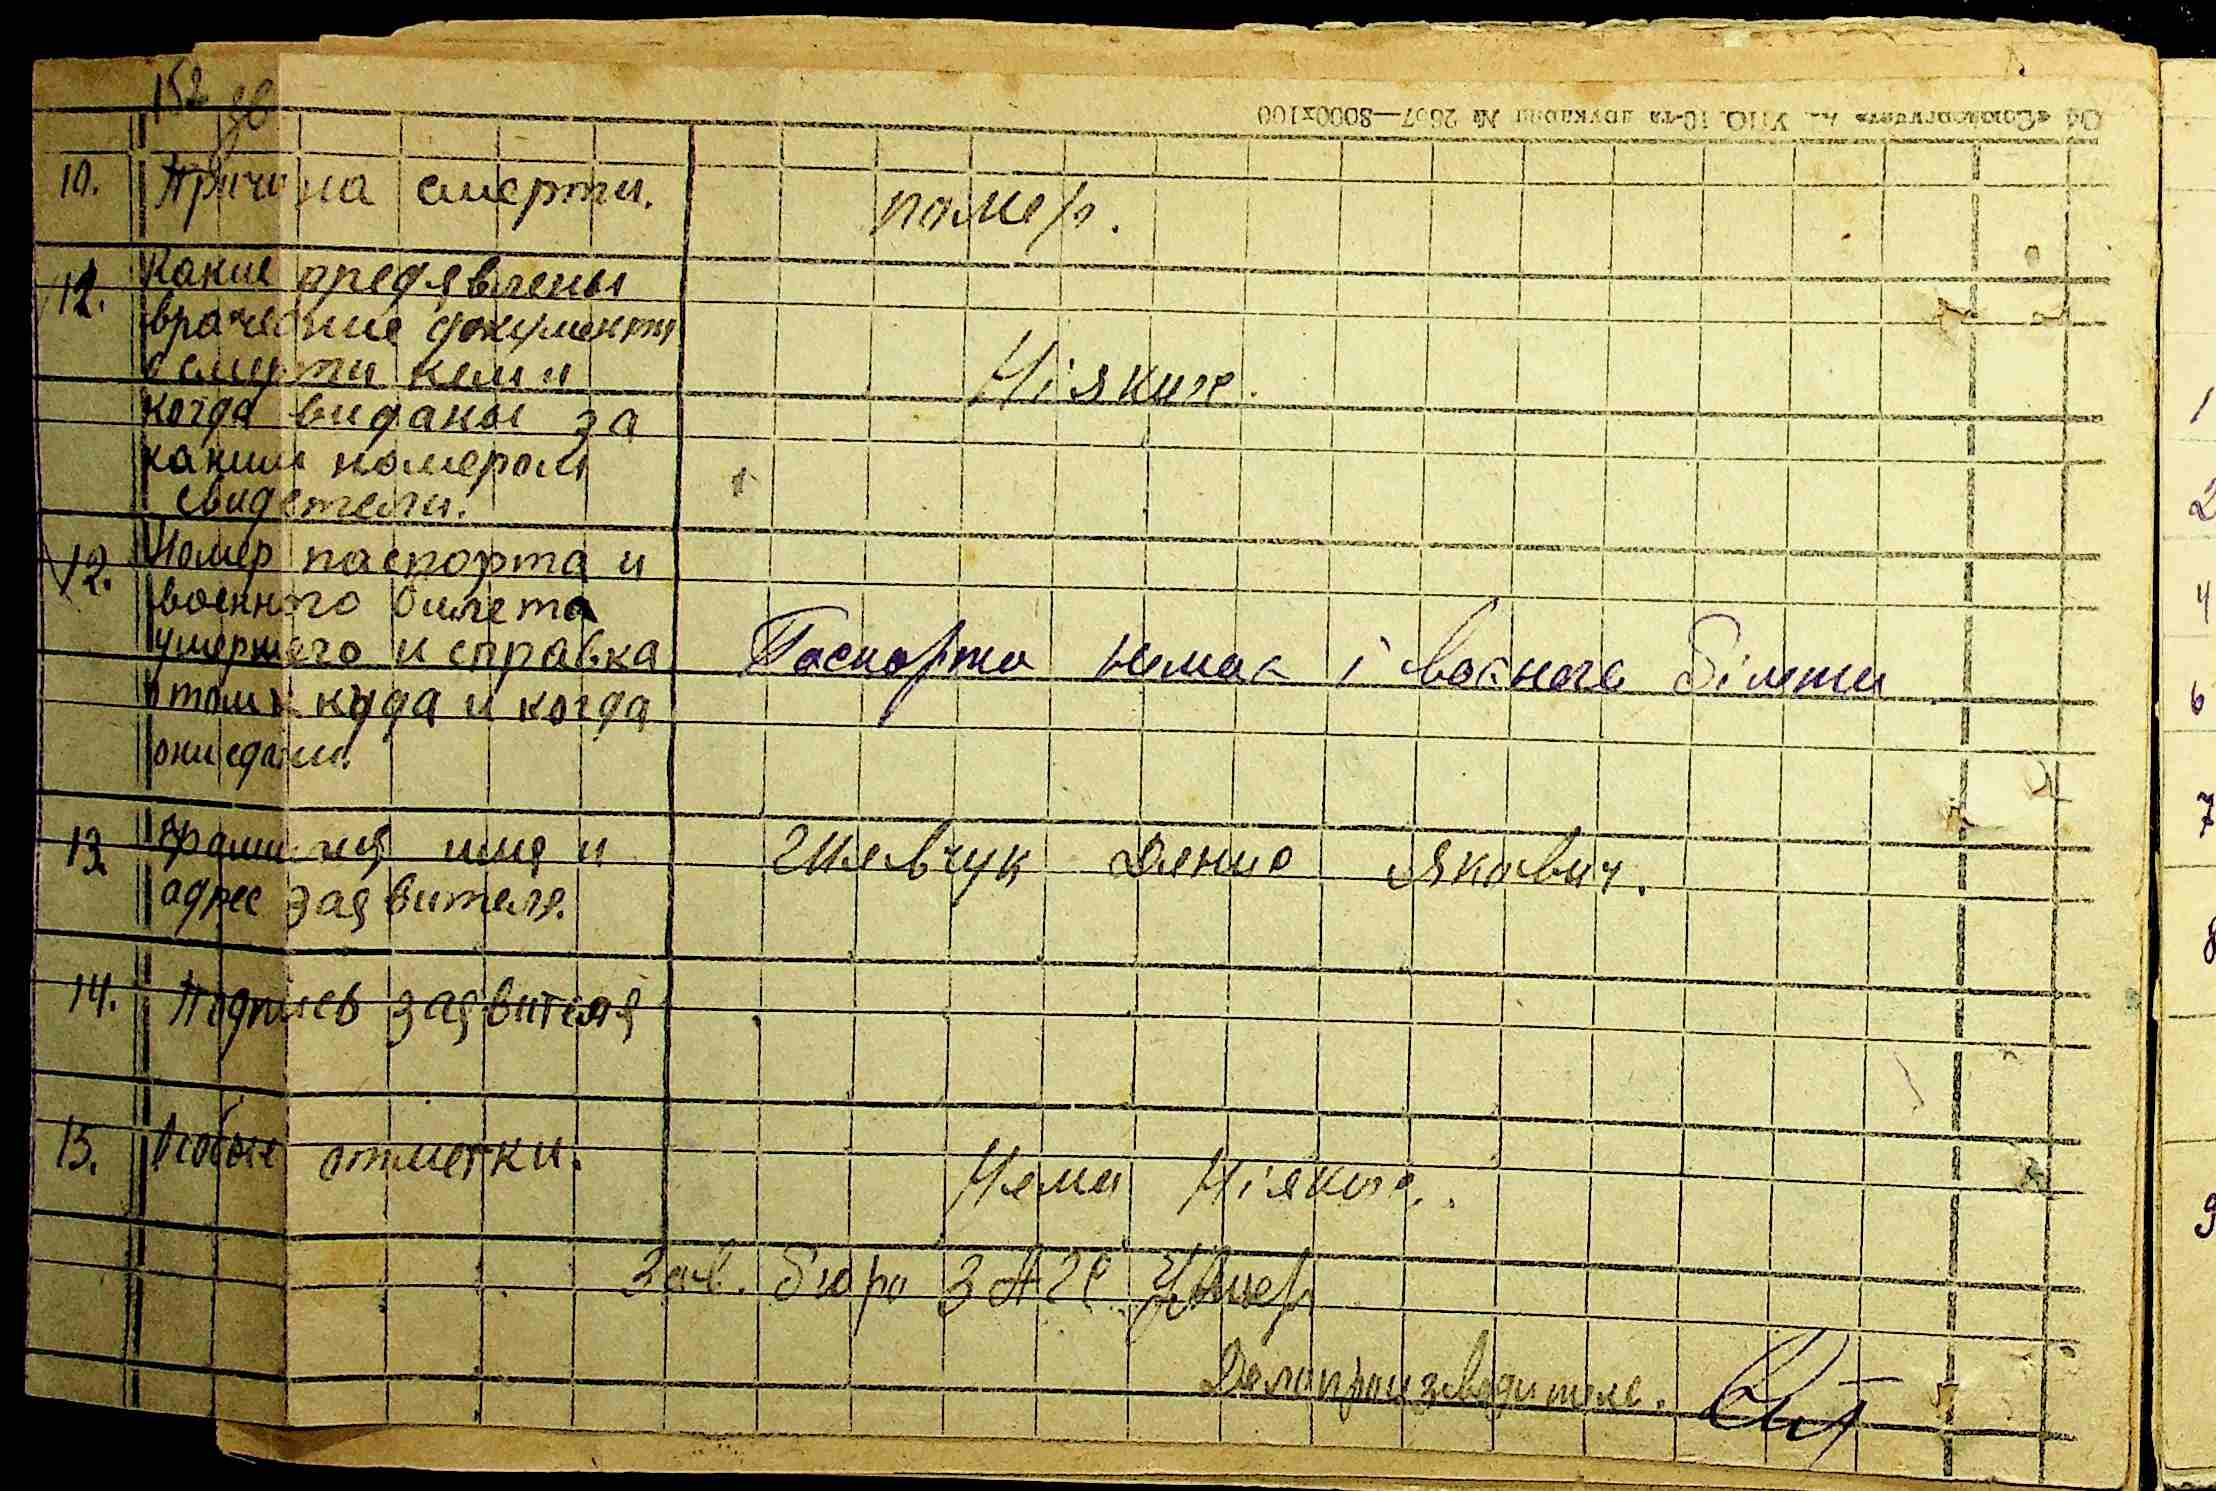 152 зв
№ 2657—8000х100
10. Причина смерти. помер.
12. Какие предявлены
врачебние документи
о смерти кем и
когда виданы за
каким номером
свидетели.
Ніяких.
12. Номер паспорта и
военного билета
умершего и справка
о том куда и когда
они сдани.
Паспорта немає і воєного білета
13. Фамилия имя и
адрес заявителя.
Шевчук Данило Якович.
14. Подпись заявителя
15. Особые отметки. Нема Ніяких.
Зав. бюро ЗАГС
Делопроизводитель.
1
2
4
6
7
8
9